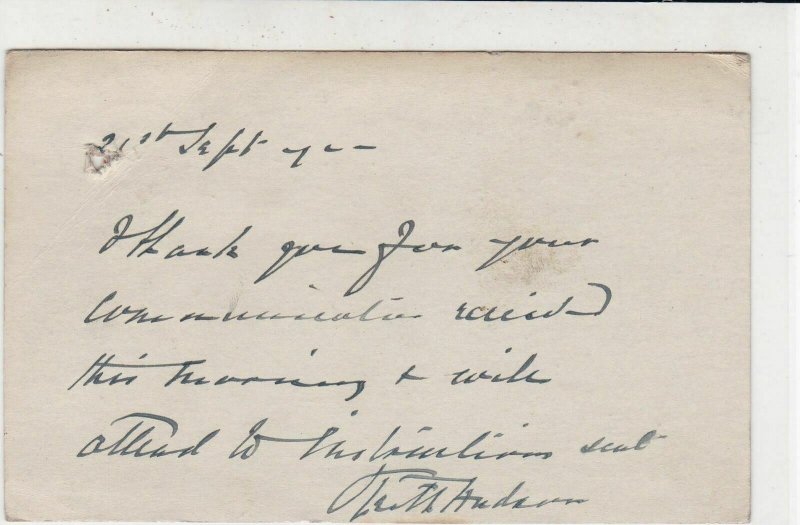 21st Sept
Thank you for your
Communication received
this morning & will
attend to instructions sent
Hudson